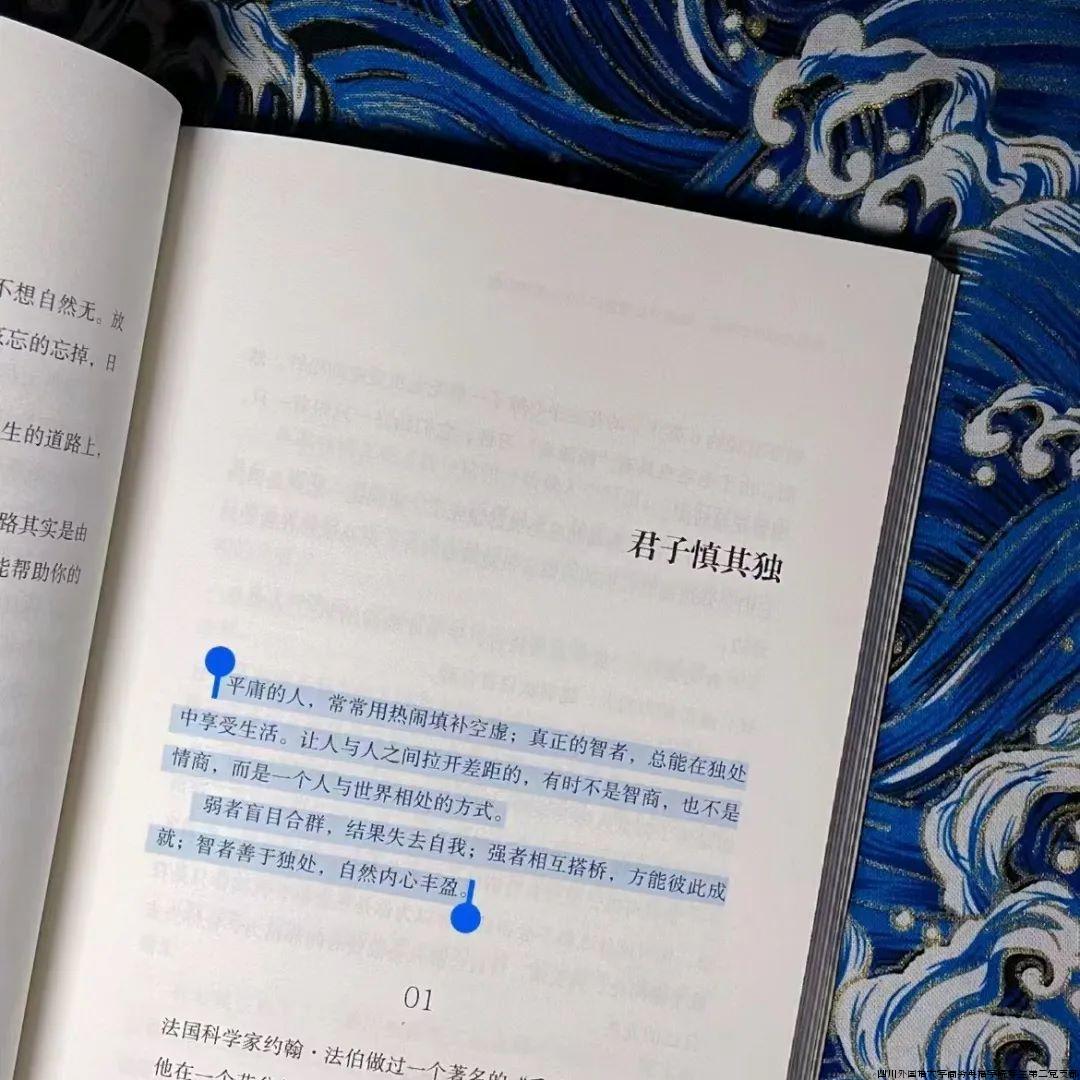 不想自然无。放
忘的忘掉，日
生的道路上，
路其实是由
能帮助你的
君子慎其独
平庸的人，常常用热闹填补空虚；真正的智者，总能在独处
中享受生活。让人与人之间拉开差距的，有时不是智商，也不是
情商，而是一个人与世界相处的方式。
弱者盲目合群，结果失去自我；强者相互搭桥，方能彼此成
就；智者善于独处，自然内心丰盈。
01
法国科学家约翰·法伯做过一个著名的“
他在一个花
四川外国语大学商务英语学院学生第二党支部